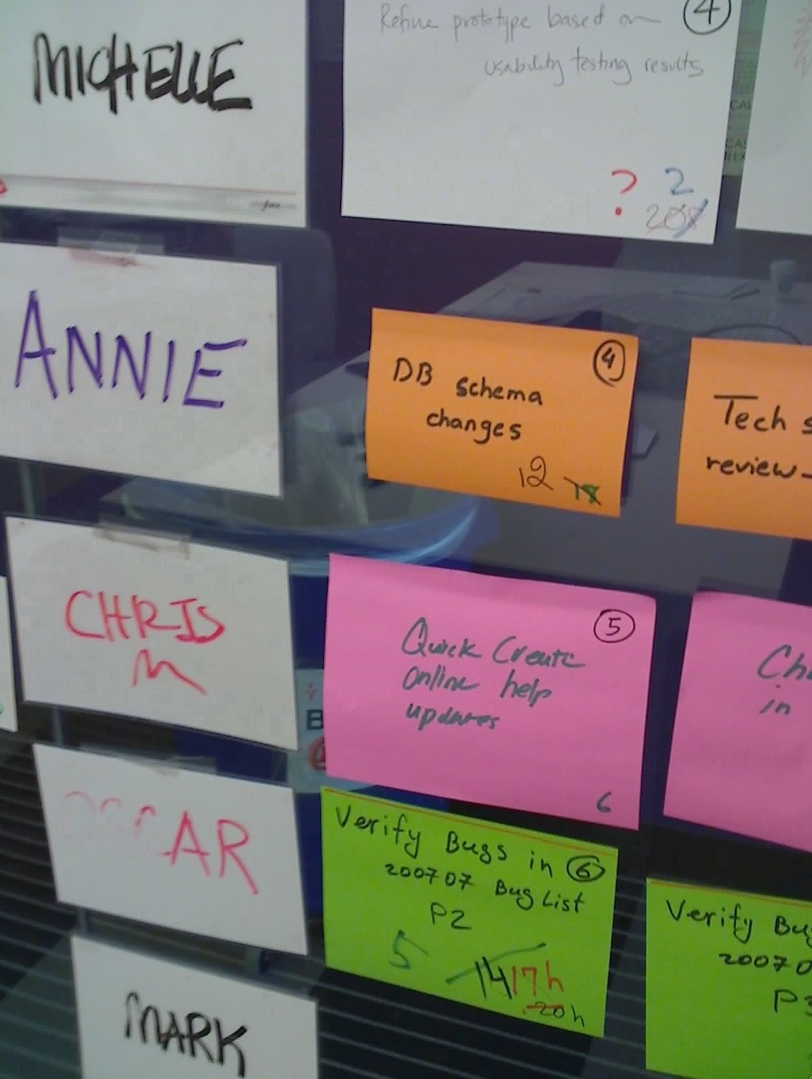 MICHELLE
Refine prototype based on
usability testing results
4
? 2
208
ANNIE
DB schema
changes
4
12 18
Tech
review-
CHRIS
M
Quick Create
online help
updates
5
6
in
OSCAR
Verify Bugs in 6
200707 Bug List
P2
5 14 17h
20h
Verify
P3
MARK